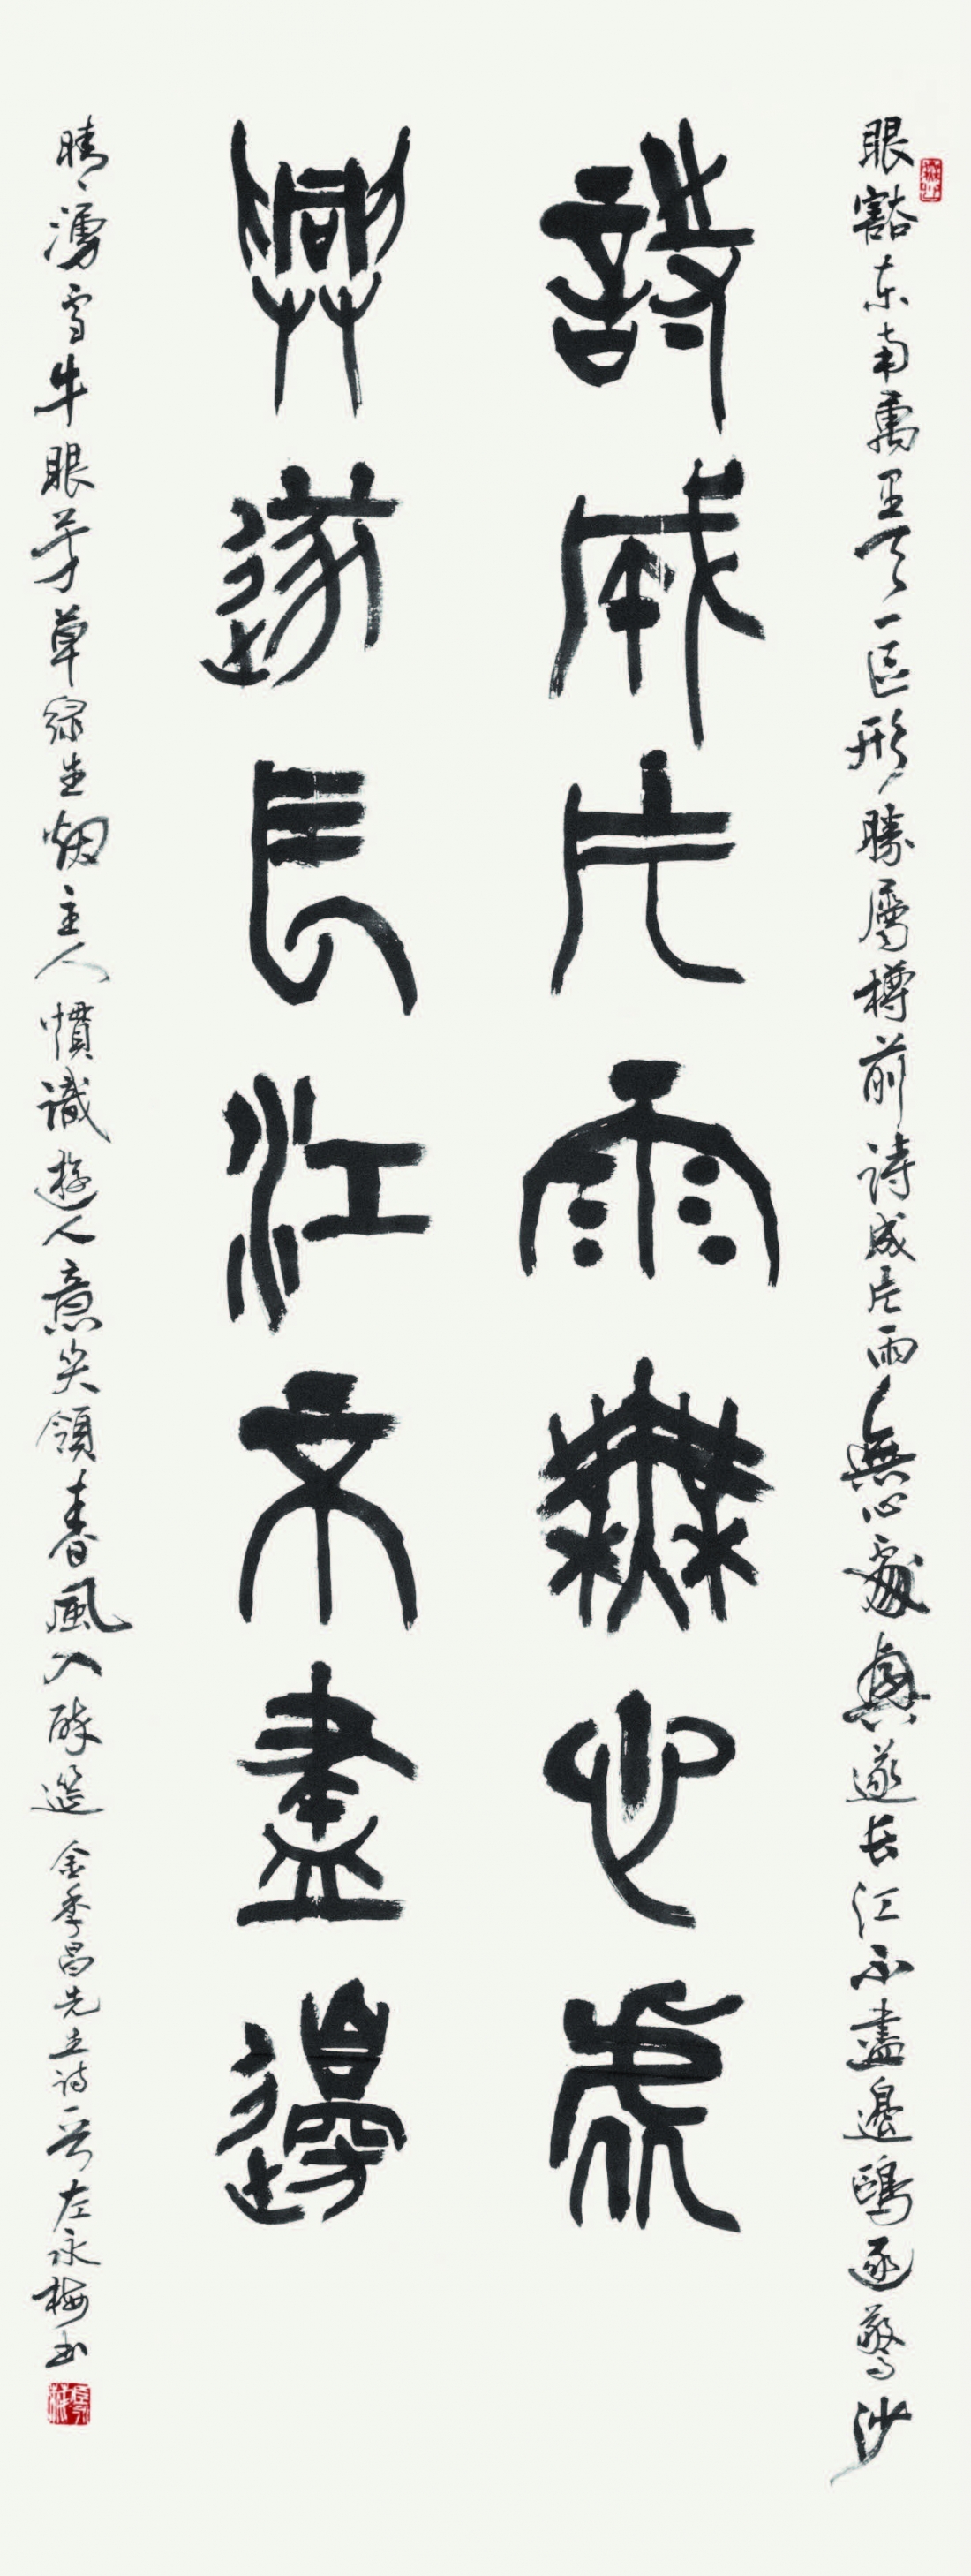 眼豁东南萬里天一區形勝屬樽前詩成片雨無心處興遂长江不盡邊鷗逐驚沙
詩成片雨無心處
興遂長江不盡邊
晴湧雪牛眠芳草綠生烟主人慣識遊人意笑領春風入醉筵 金季昌先生詩一首 左永梅书